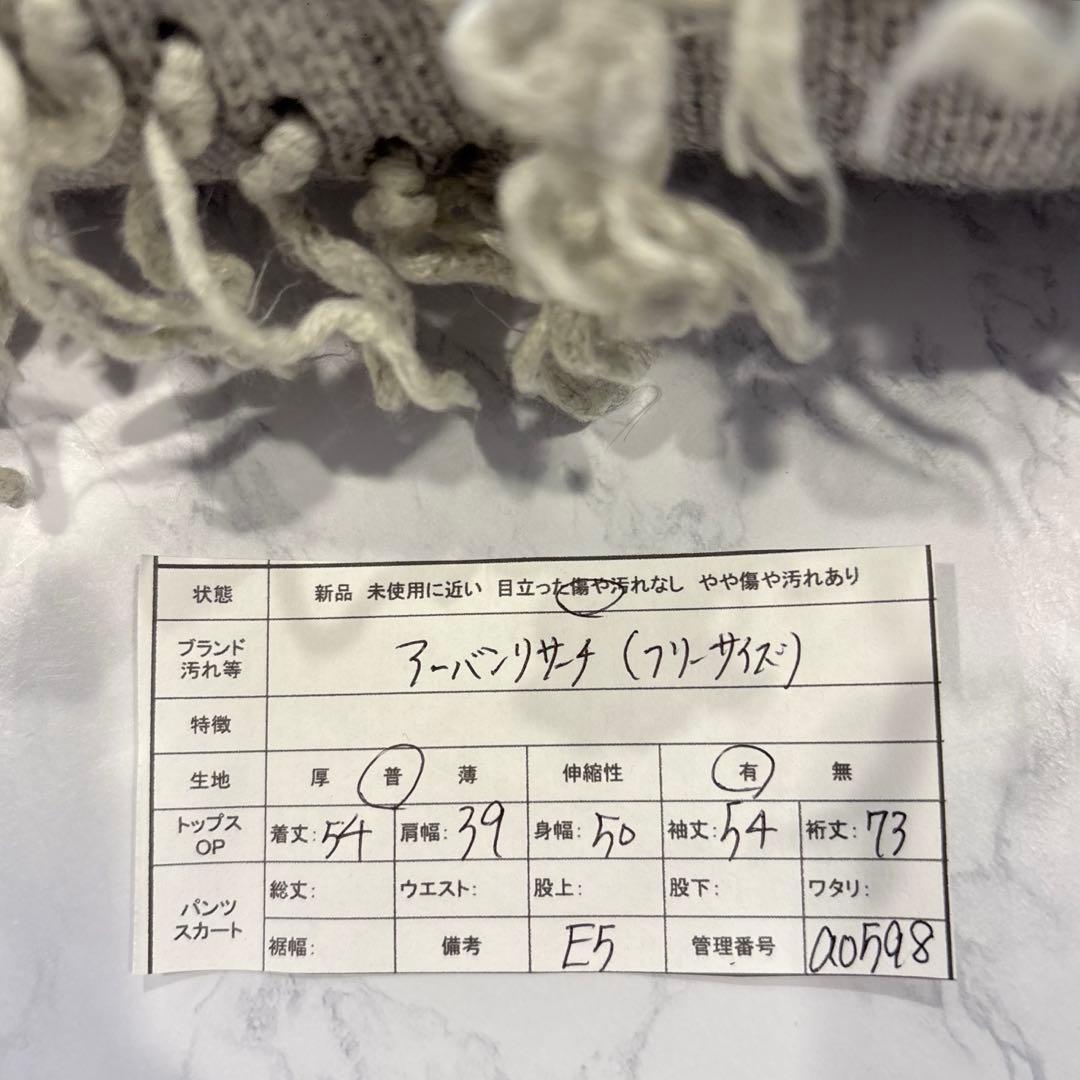 状態 新品 未使用に近い 目立った傷や汚れなし やや傷や汚れあり
ブランド 汚れ等 アーバンリサーチ（フリーサイズ）
特徴
生地 厚 普 薄 伸縮性 有 無
トップス OP 着丈:54 肩幅:39 身幅:50 袖丈:54 裄丈:73
パンツ スカート 総丈: ウエスト: 股上: 股下: ワタリ:
裾幅: 備考 E5 管理番号 a0598